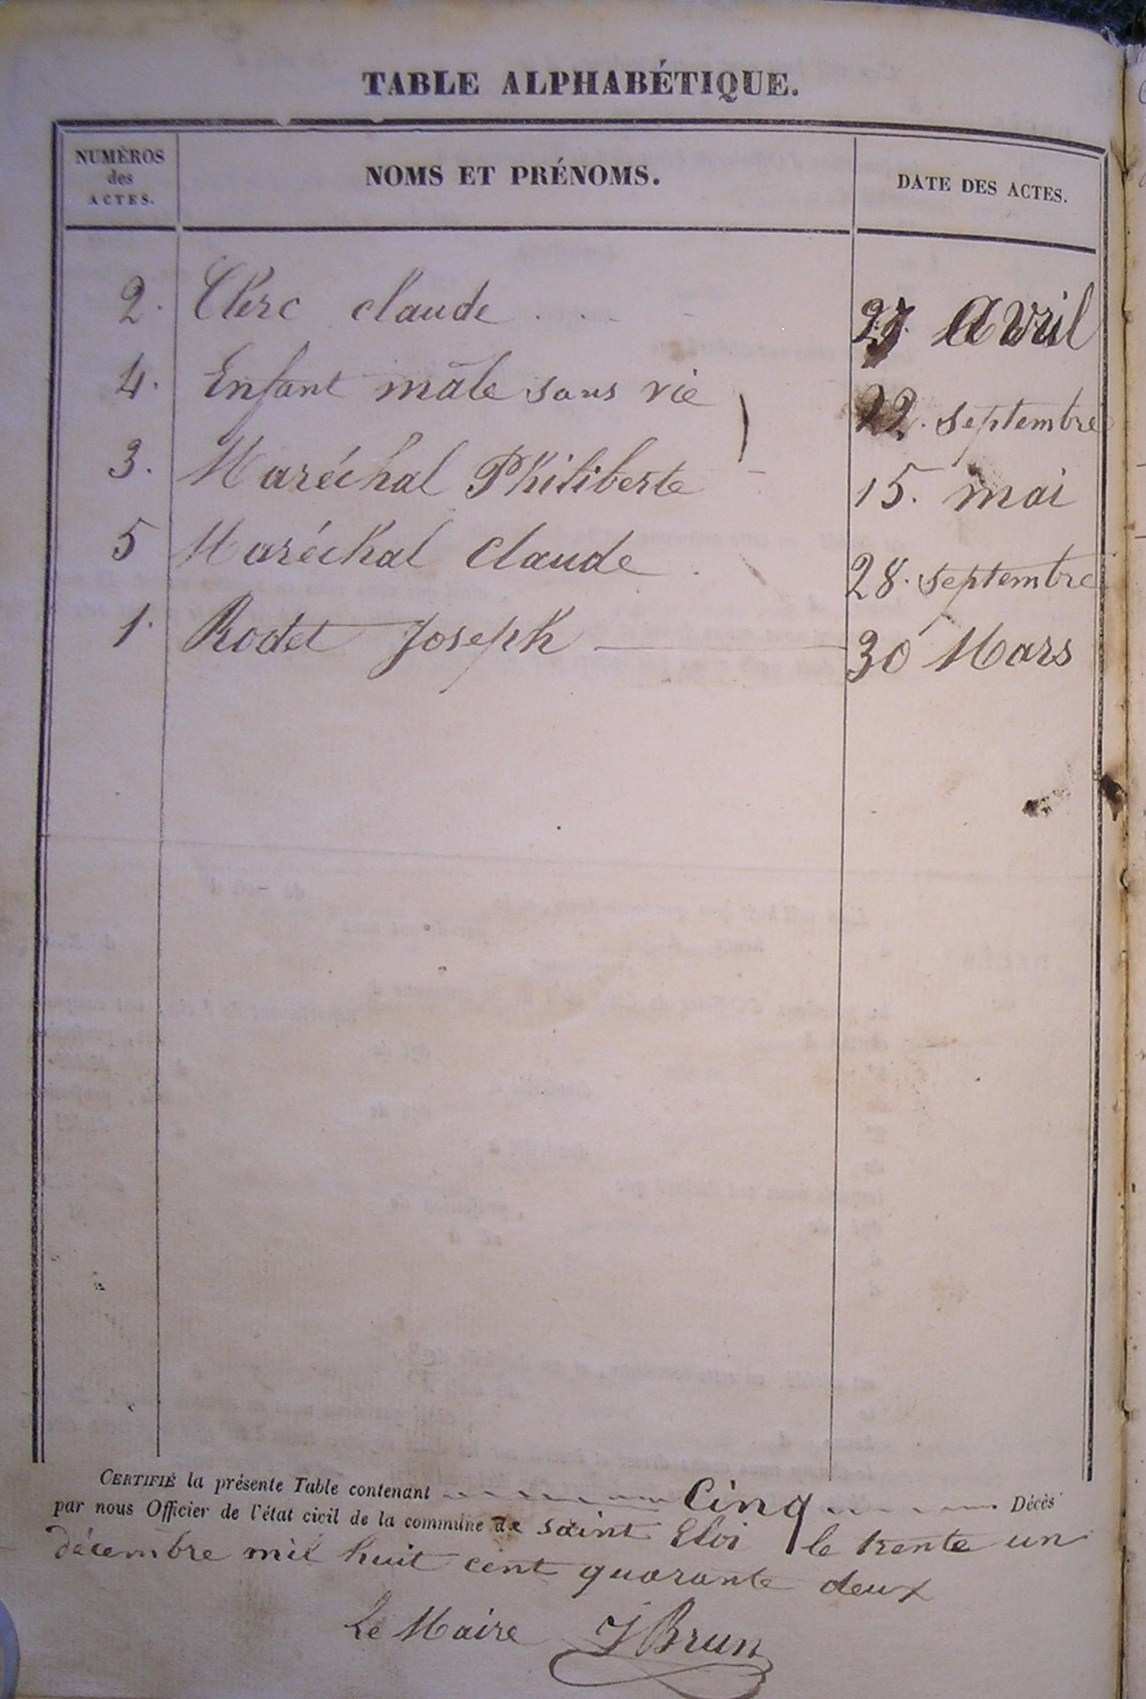 TABLE ALPHABÉTIQUE.
NUMÉROS des ACTES. NOMS ET PRÉNOMS. DATE DES ACTES.
2. Clerc claude 27 avril
4. Enfant mâle sans vie 22. septembre
3. Maréchal Philiberte 15. mai
5 Maréchal claude 28. septembre
1. Rodet Joseph 30 Mars
CERTIFIÉ la présente Table contenant Cinq Décès
par nous Officier de l'état civil de la commune de saint Eloi le trente un
décembre mil huit cent quarante deux
Le Maire J Brun